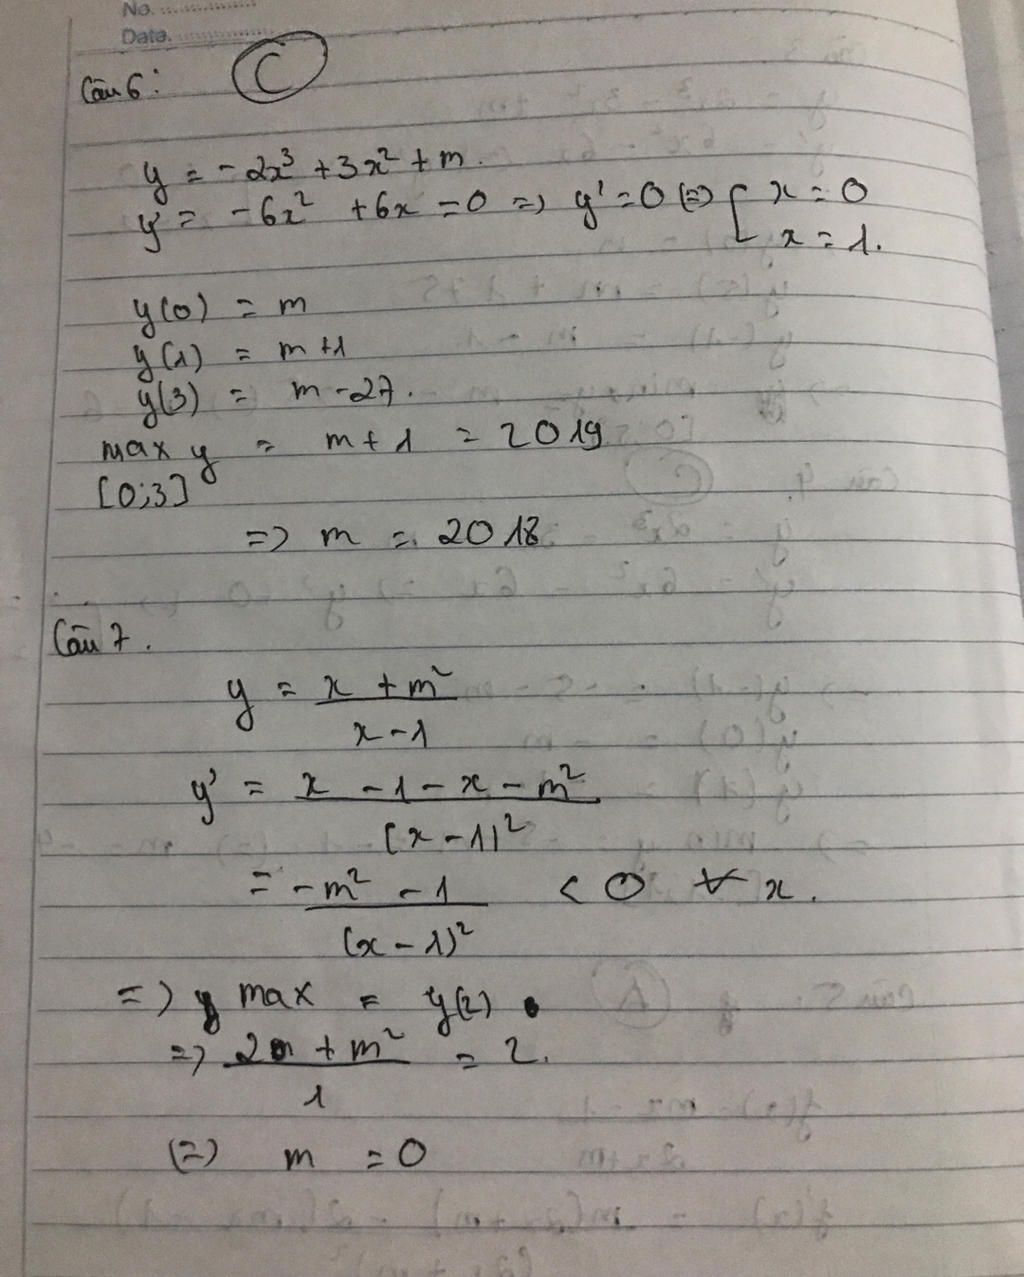 No.
Date.
Câu 6: C
y = -2x³ + 3x² + m.
y' = -6x² + 6x = 0 => y' = 0 (=) [ x = 0
x = 1.
y(0) = m
y(1) = m+1
y(3) = m-27.
max y = m+1 = 2019
[0;3]
=> m = 2018
Câu 7.
y = x + m²
x - 1
y' = x - 1 - x - m²
(x - 1)²
= -m² - 1 < 0 ∀ x.
(x - 1)²
=> y max = y(2)
=> 2 + m² = 2.
1
(=) m = 0